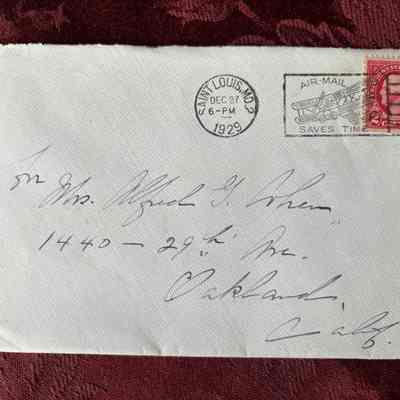 SAINT LOUIS, MO. 2
DEC 27
6-PM
1929
AIR-MAIL
SAVES TIME
For Mrs. Alfred G. Cohen
1440 - 29th Ave.
Oakland
Calif.